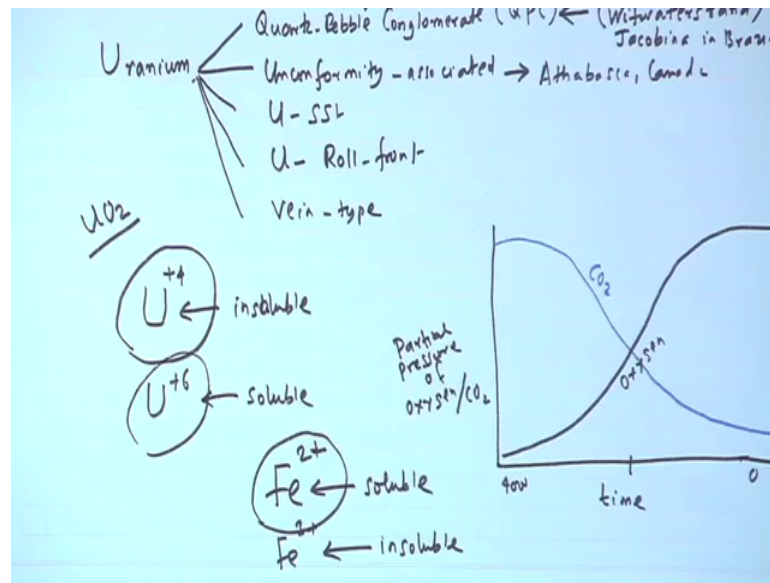 Quartz-Pebble Conglomerate (QPC) ← (Witwatersrand)
Jacobina in Braz
Uranium
Unconformity-associated → Athabasca, Canad
U-SSL
U-Roll-front
Vein-type
UO2
U+4 ← insoluble
U+6 ← soluble
Fe2+ ← soluble
Fe3+ ← insoluble
Partial
Pressure
of
oxygen/CO2
CO2
oxygen
0
time